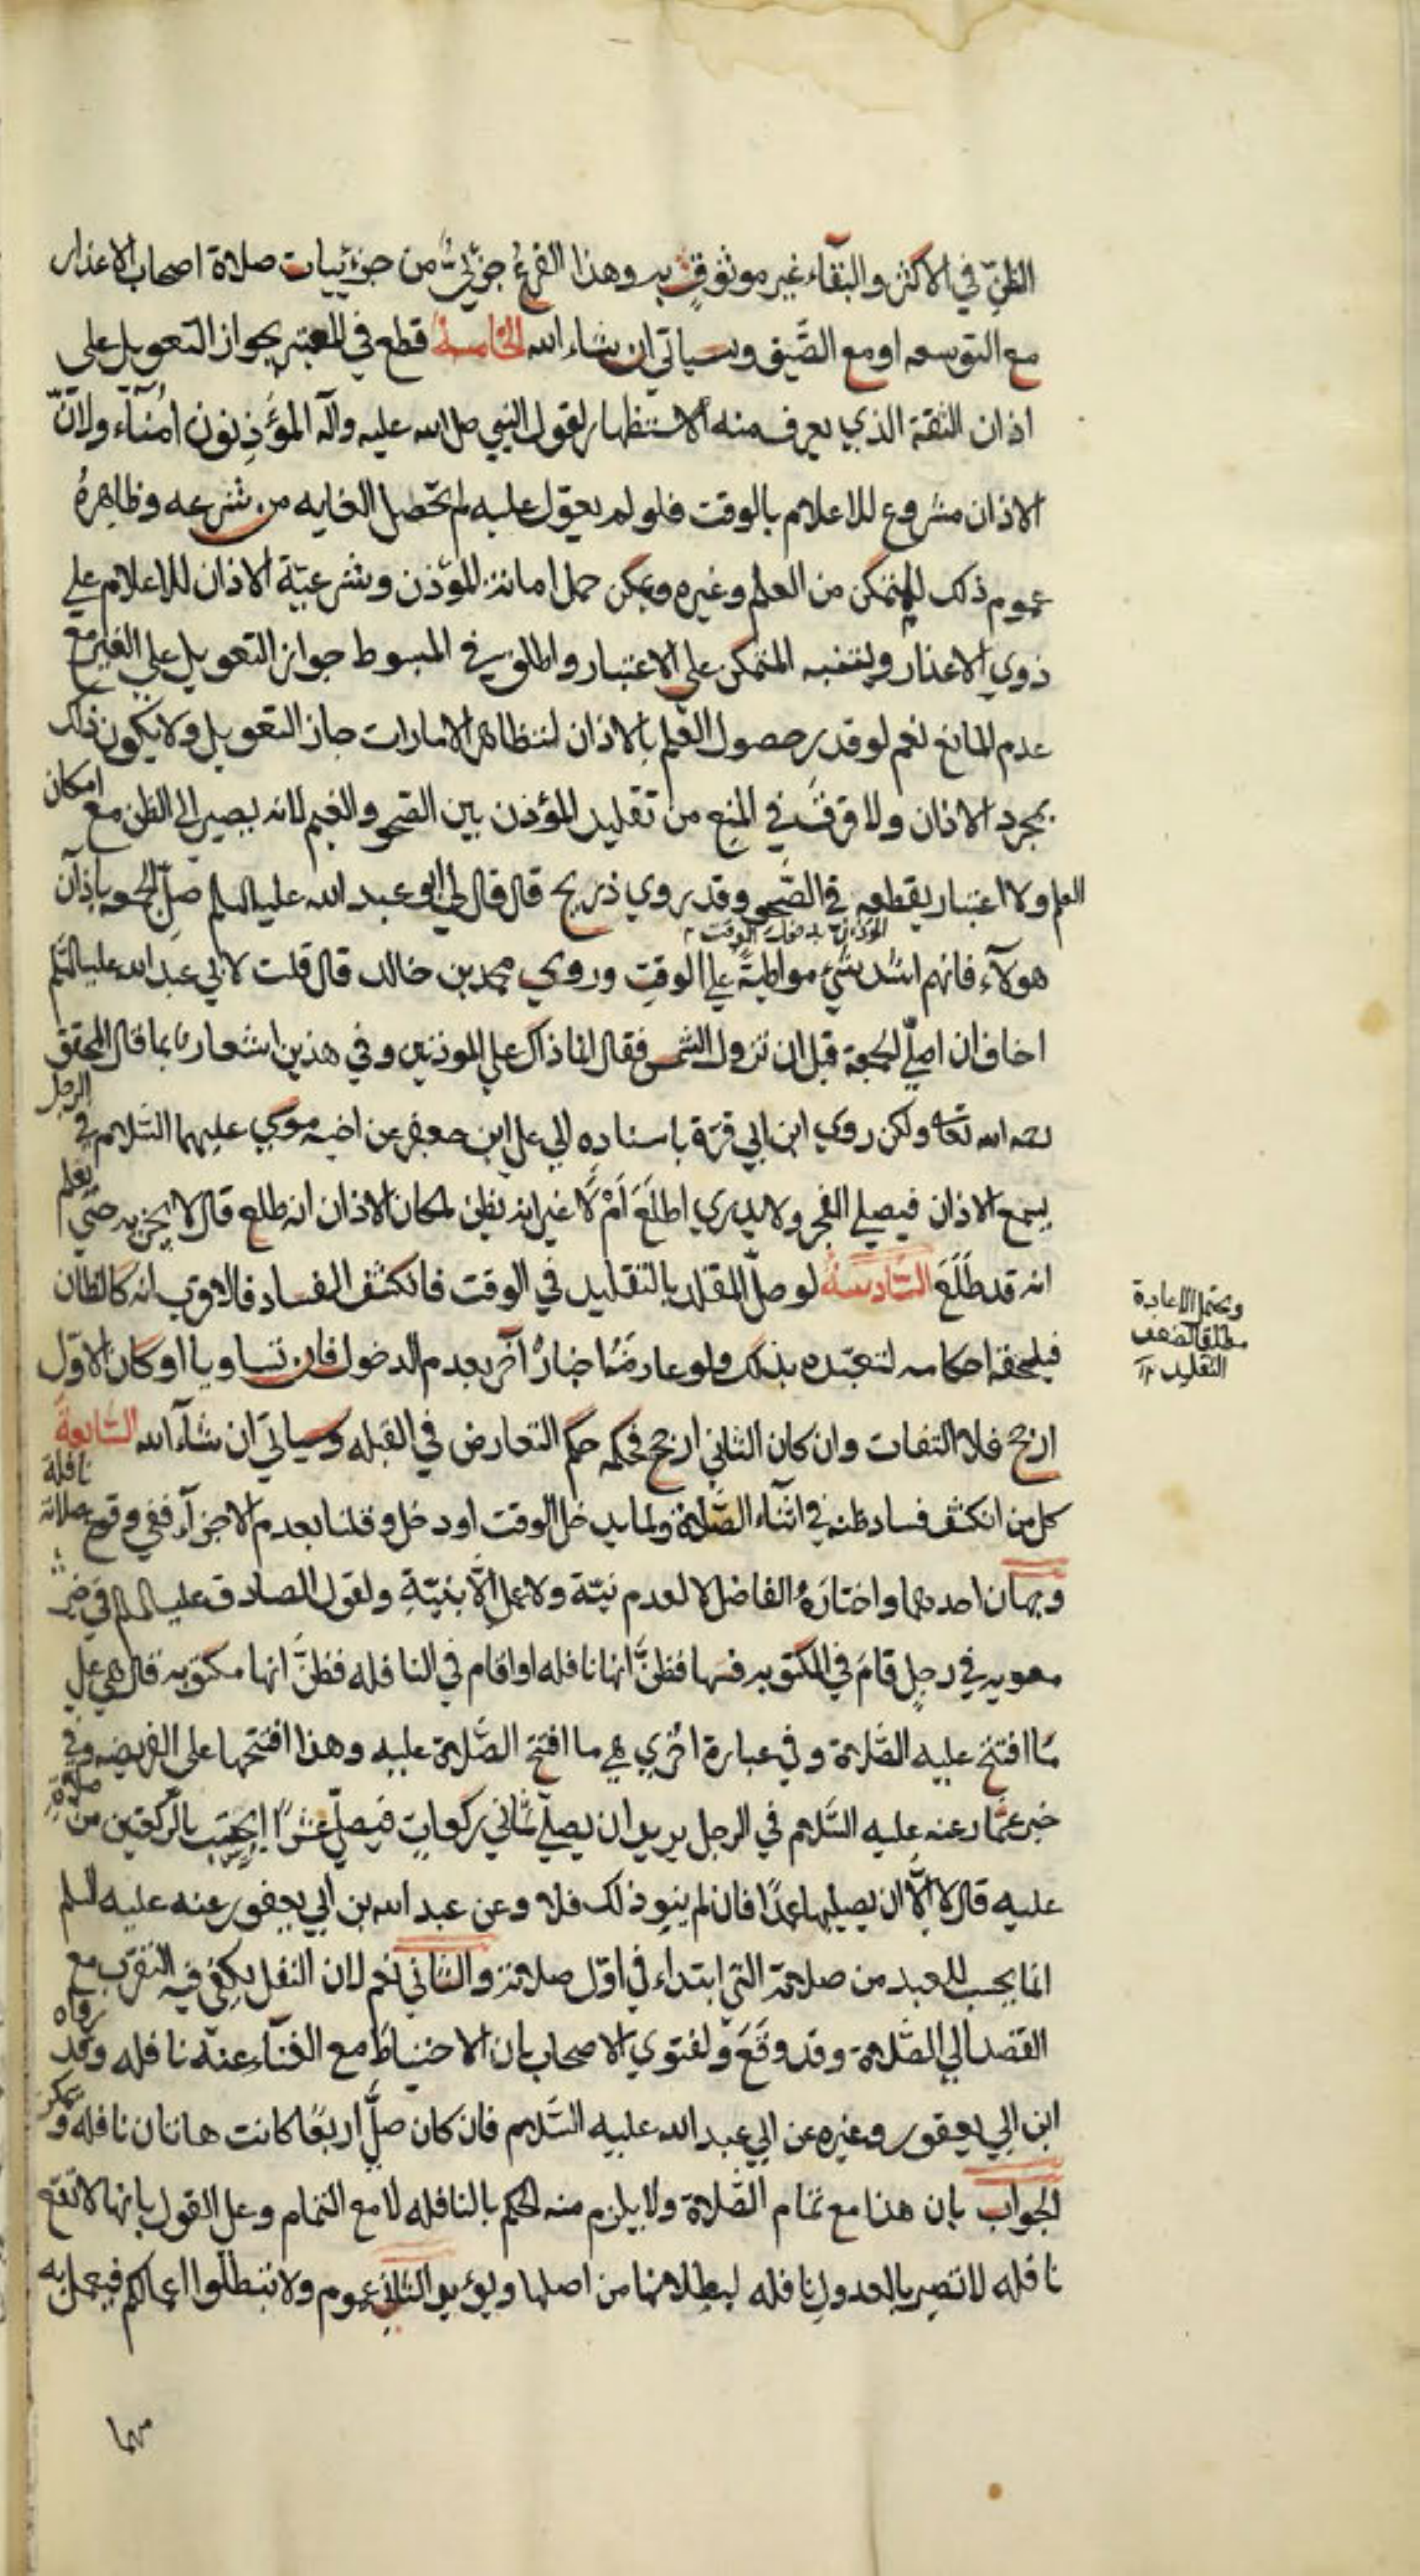 الظنّ في الاكثر والبقآء غير موثوقٍ به وهذا الفرع جزئيٌّ من جزئيات صلاة اصحاب الاعذار
مع التوسعه او مع الضّيق وسياتي ان شاء الله الخامسة قطع في المعتبر بجواز التعويل على
اذان الثقة الذي يعرف منه الاستظهار لقول النبي صلى الله عليه وآله المؤذِنون اُمنآء ولانّ
الاذان مشروع للاعلام بالوقت فلو لم يعوّل عليه لم تحصل الغايه من شرعه وظاهرهُ
عموم ذلك للمتمكن من العلم وغيره ويمكن حمل امانة المؤذن وشرعيّة الاذان للاعلام على
ذوي الاعذار ولتنبيه المتمكن على الاعتبار واطلق في المبسوط جواز التعويل على الغير مع
عدم المانع نعم لو قدر حصول العلم بالاذان لتظاهر الامارات جاز التعويل ولا يكون ذلك
بمجرد الاذان ولا فرق في المنع من تقليد المؤذن بين الصّحو والغيم لانه يصير الى الظن مع امكان
العلم ولا اعتبار بقطعه في الصّحو وقد روي ذريح قال قال لي ابو عبد الله عليه السلم صلّ الجمعه باذان
هولآء فانهم اشد شيْ مواظبةً على الوقتِ وروي محمد بن خالد قال قلت لابي عبد الله عليه السّلم
اخاف ان اصلّي الجمعة قبل ان تزول الشمس فقال انما ذاك على الموذنين وفي هذين اشعار بما قال المحقق
رحمه الله تعالى ولكن روي ابن ابي قرّة باسناده الي علي ابن جعفر عن اخيه موسي عليهما السّلام في الرجل
يسمع الاذان فيصلي الفجر ولا يدري اطلَعَ اَمْ لَا غير انه يظن لمكان الاذان انه طلع قال لا يجزيه حتى يعلم
انه قد طلَعَ السّادسة لو صلّى المقلد بالتقليد في الوقت فانكشف الفساد فالاقرب انه كالظان
ويحتمل الاعادة
مطلقا لضعف
التقليد
فيلحقه احكامه لتعبّده بذلك ولو عارضه اخبارٌ آخر بعدم الدخول فان تساويا او كان الاوّل
ارجح فلا التفات وان كان الثاني ارجح فحكمه حكم التعارض في القبله وسياتي ان شآء الله السّابعة
كل من انكشف فساد ظنه في اثنآء الصّلاة ولما يدخل الوقت او دخل وقلنا بعدم الاجزآء ففي وقوع صلاته نافلة
وجهان احدهما واختارهُ الفاضل لا لعدم نيّته ولا عمل الّا بنيّةٍ ولقول الصادق عليه السلم في خبر
معويه في رجلٍ قامَ في المكتوبه فسها فظنَّ انها نافله او اقام في النافله فظنَّ انها مكتوبه قال هي على
مَا افتتح عليه الصّلاة وفي عبارة اخري هي ما افتتح الصّلاة عليه وهذا افتتحها على الفريضه وفي
خبر عمّار عنه عليه السّلام في الرجل يريد ان يصلّي ثماني ركعاتٍ فيصلّي عشرًا ايحتسب بالركعتين من صلاةٍ
عليه قال لا الّا ان يصليها عمدًا فان لم ينوِ ذلك فلا وعن عبد الله بن ابي يعفور عنه عليه السلم
انما يحسب للعبد من صلاته التي ابتداء في اوّل صلاته والثاني نعم لان النفل يكفي فيه التقرّب مع
القصد الي الصّلاة وقد وقعَ ولفتوي الاصحاب بان الاحتياطَ مع الغنآء عنه نافله وقد رواه
ابن ابي يعفور وغيره عن ابي عبد الله عليه السّلام فان كان صلّى اربعًا كانت هاتان نافله ويمكن
الجواب بان هذا مع تمام الصّلاة ولا يلزم منه الحكم بالنافله لا مع التمام وعلى القول بانها لا تقع
نافله لا تصير بالعدول نافله لبطلانها من اصلها ويؤيد الثاني عموم ولا تبطلوا اعمالكم فيعمل به
مهما